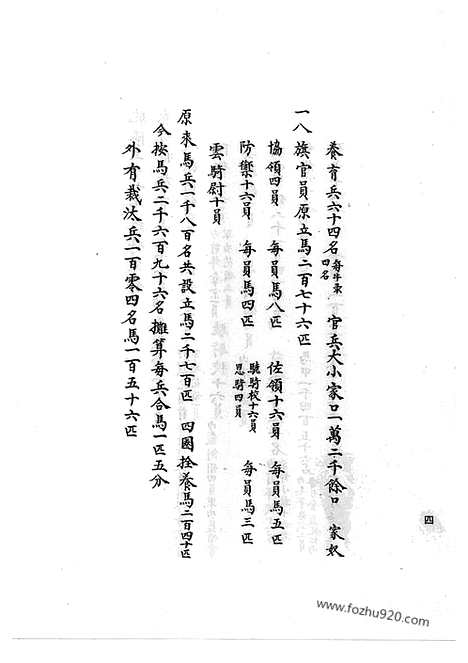 養育兵六十四名 每牛彔四名 官兵大小家口一萬二千餘口 家奴
一八旗官員原立馬二百七十六匹
協領四員 每員馬八匹 佐領十六員 每員馬五匹
防禦十六員 每員馬四匹 驍騎校十六員 恩騎四員 每員馬三匹
雲騎尉十員
原來馬兵一千八百名共設立馬二千七百匹 四圈拴養馬二百四十匹
今按馬兵二千六百九十六名攤算每兵合馬一匹五分
外有裁汰兵一百零四名馬一百五十六匹
四
www.fozhu920.com